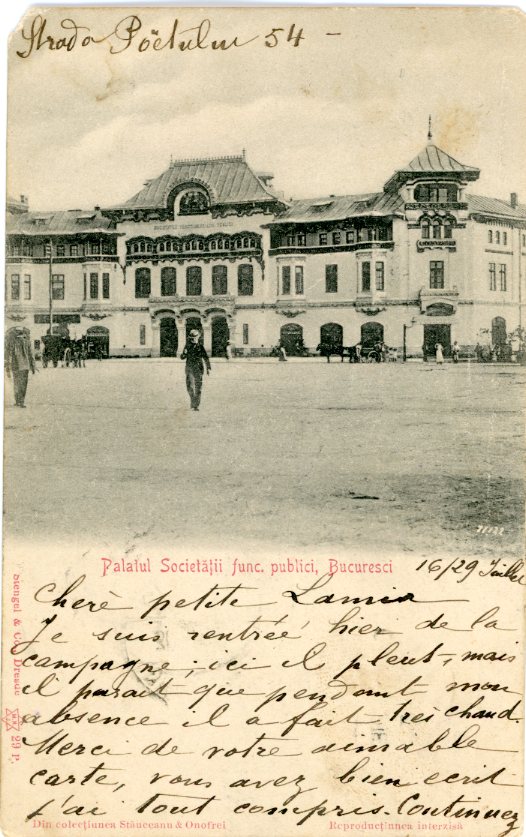 Strada Pöetului 54 -
Palatul Societății func. publici, Bucuresci
16/29 Juillet
Cherè petite Lamia
Je suis rentrée hier de la
campagne; ici il pleut, mais
il parait que pendant mon
absence il a fait très chaud.
Merci de votre aimable
carte, vous avez bien ecrit
j'ai tout compris. Continuez
Stengel & Co. Dresde 29 P.
Din colecțiunea Stăuceanu & Onofrei
Reproducțiunea interzisă